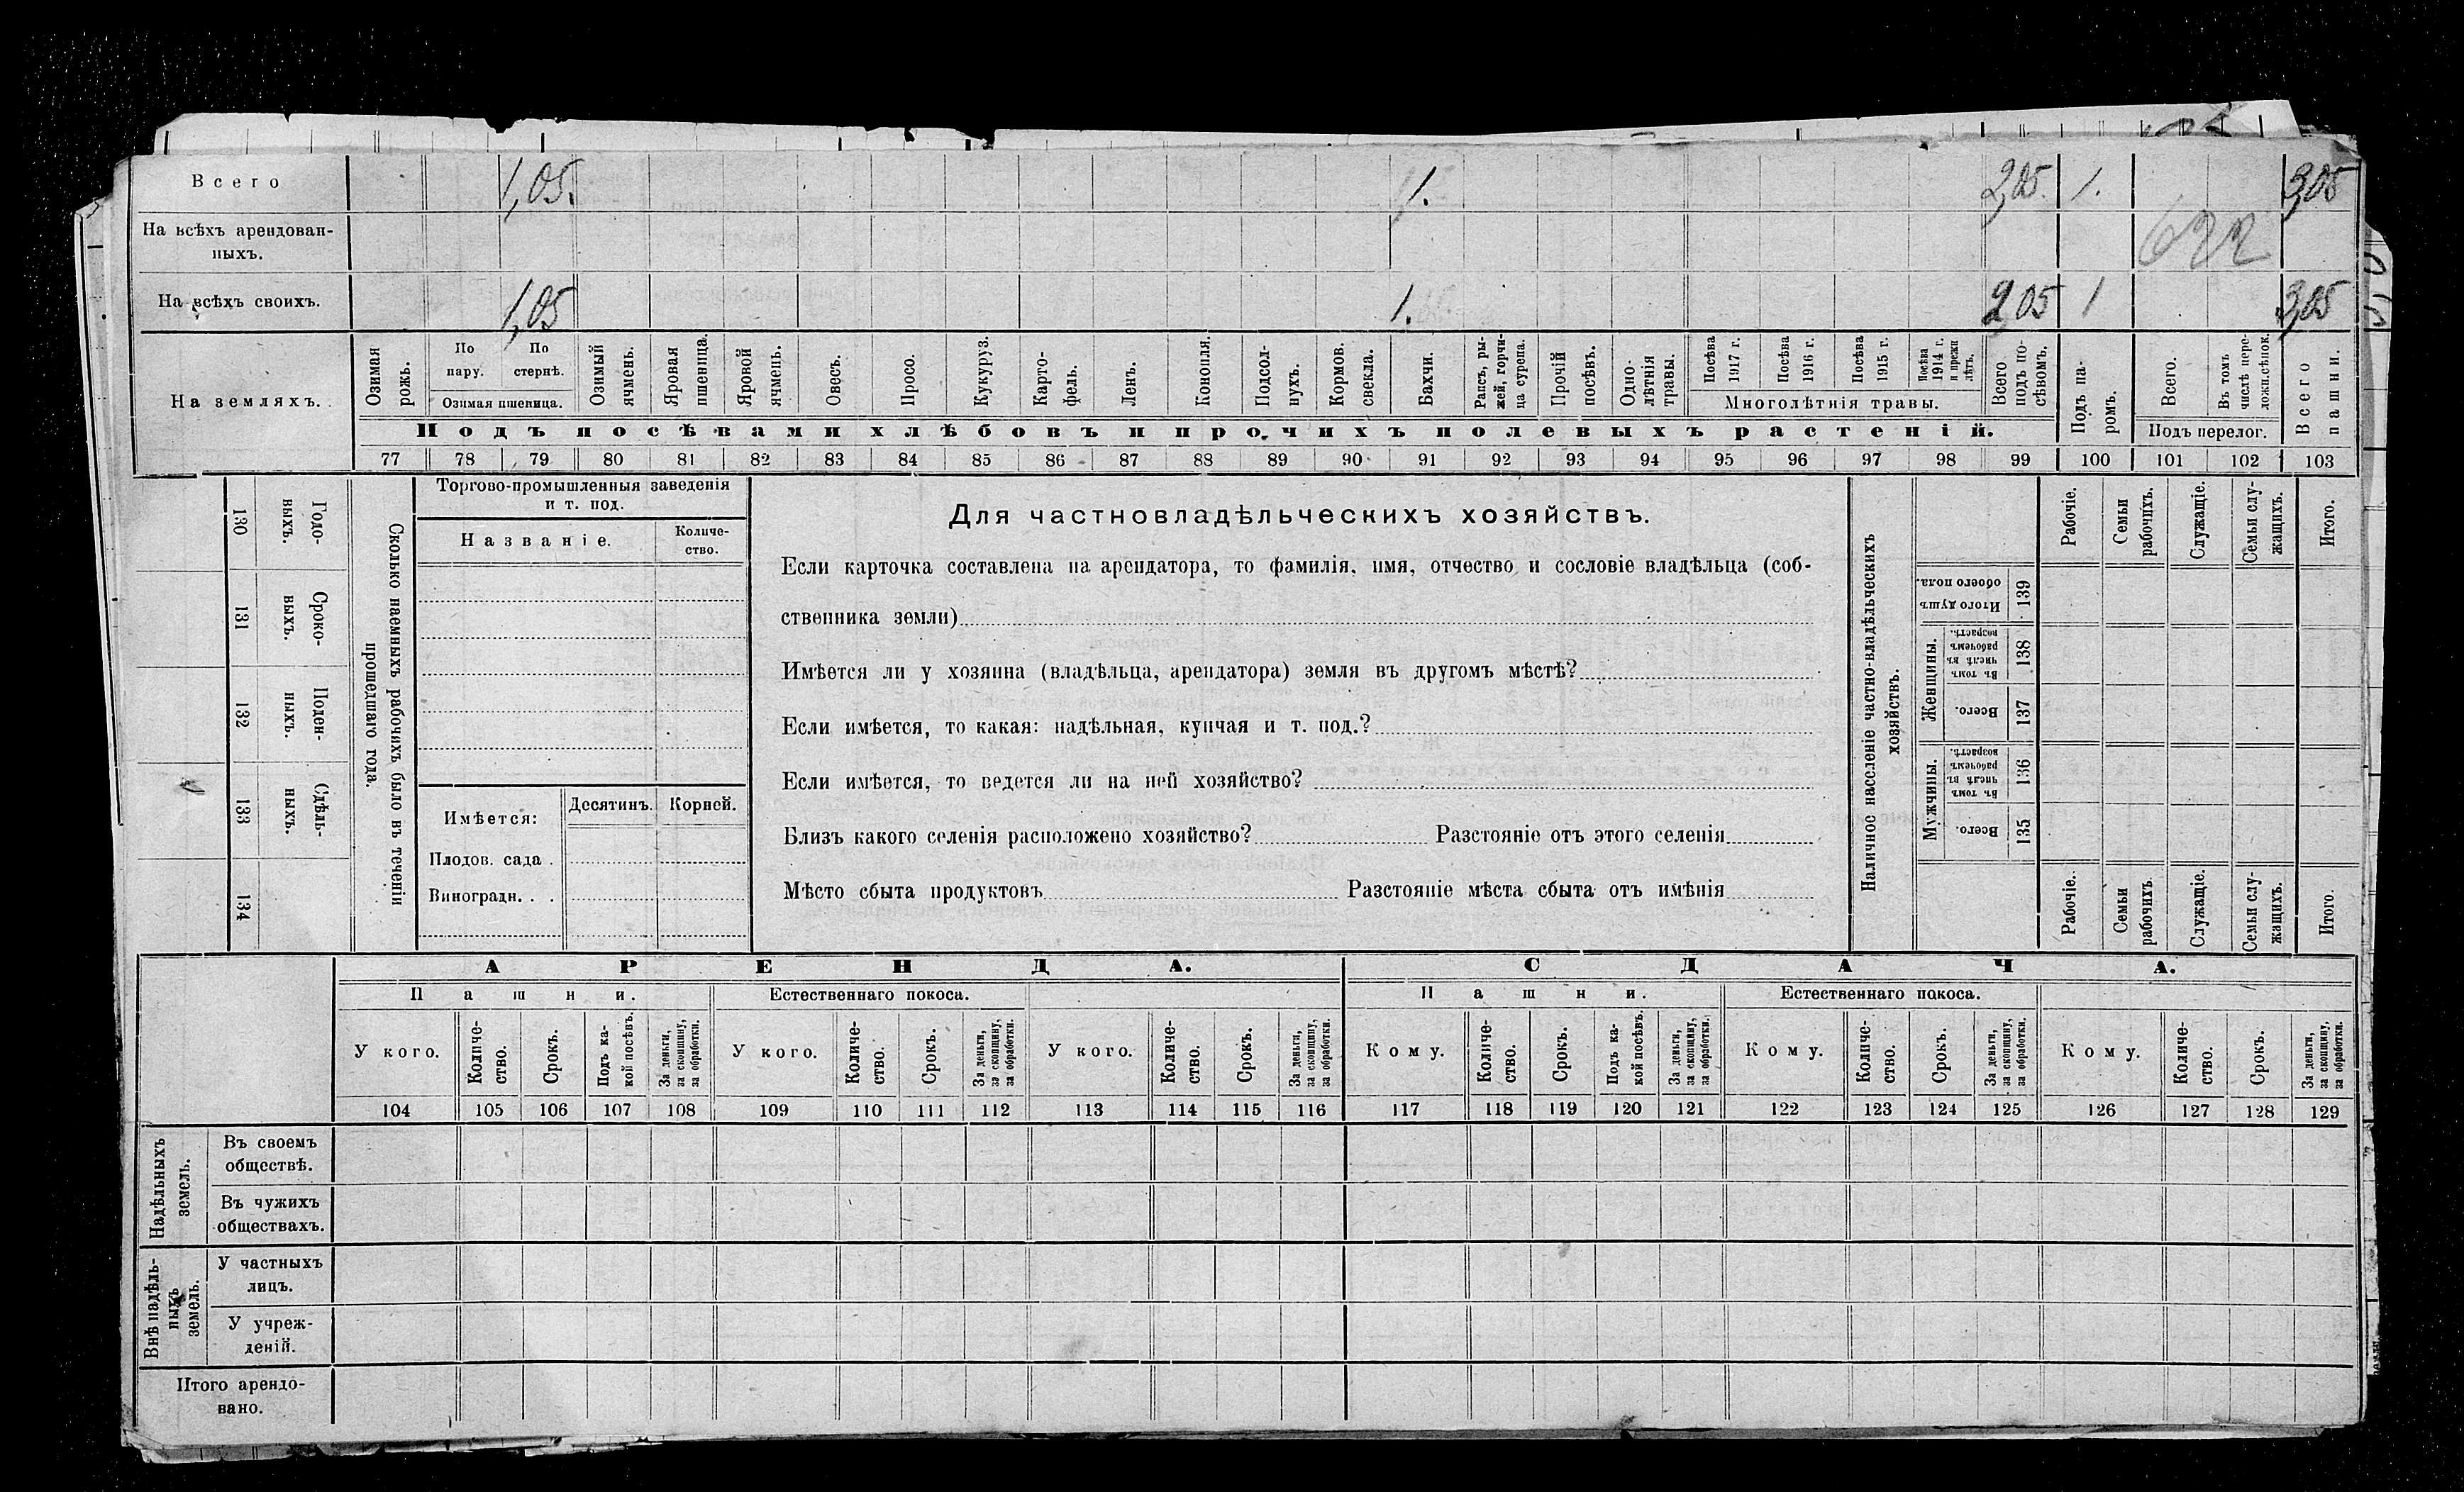 Всего 1,05. 1. 2,05. 1. 3,05
На всѣхъ арендован-
ныхъ. 622
На всѣхъ своихъ. 1,05 1. 2,05 1 3,05
На земляхъ.
Озимая рожь.
По пару.
По стернѣ.
Озимая пшеница.
Озимый ячмень.
Яровая пшеница.
Яровой ячмень.
Овесъ.
Просо.
Кукуруз.
Карто-
фель.
Ленъ.
Конопля.
Подсол-
нухъ.
Кормов.
свекла.
Бахчи.
Рапсъ, ры-
жей, горчи-
ца сурепа.
Прочій
посѣвъ.
Одно-
лѣтнія
травы.
Посѣва
1917 г.
Посѣва
1916 г.
Посѣва
1915 г.
Посѣва
1914 г.
и прежн
лѣтъ.
Многолѣтнія травы.
Всего
подъ по-
сѣвомъ.
Подъ па-
ромъ.
Всего.
Въ томъ
числѣ пере-
ложн.сѣнок.
Подъ перелог.
Всего
пашни.
Подъ посѣвами хлѣбовъ и прочихъ полевыхъ растеній.
77 78 79 80 81 82 83 84 85 86 87 88 89 90 91 92 93 94 95 96 97 98 99 100 101 102 103
Сколько наемныхъ рабочихъ было въ теченіи
прошедшаго года.
Годо-
выхъ.
130
Сроко-
выхъ.
131
Поден-
ныхъ.
132
Сдѣль-
ныхъ.
133
134
Торгово-промышленныя заведенія
и т. под.
Названіе.
Количе-
ство.
Имѣется: Десятинъ. Корней.
Плодов. сада .
Виноградн. . .
Для частновладѣльческихъ хозяйствъ.
Если карточка составлена на арендатора, то фамилія, имя, отчество и сословіе владѣльца (соб-
ственника земли)
Имѣется ли у хозяина (владѣльца, арендатора) земля въ другомъ мѣстѣ?
Если имѣется, то какая: надѣльная, купчая и т. под.?
Если имѣется, то ведется ли на ней хозяйство?
Близъ какого селенія расположено хозяйство? Разстояніе отъ этого селенія
Мѣсто сбыта продуктовъ Разстояніе мѣста сбыта отъ имѣнія
Наличное населеніе частно-владѣльческихъ
хозяйствъ.
Рабочіе.
Семьи
рабочихъ.
Служащіе.
Семьи слу-
жащихъ.
Итого.
Итого душъ
обоего пола.
139
Женщины.
Въ томъ
числѣ въ
рабочемъ
возрастѣ.
138
Всего.
137
Мужчины.
Въ томъ
числѣ въ
рабочемъ
возрастѣ.
136
Всего.
135
Рабочіе.
Семьи
рабочихъ.
Служащіе.
Семьи слу-
жащихъ.
Итого.
АРЕНДА. СДАЧА.
Пашни. Естественнаго покоса. Пашни. Естественнаго покоса.
У кого.
Количе-
ство.
Срокъ.
Подъ ка-
кой посѣвъ.
За деньги,
за скопщину,
за обработки.
У кого.
Количе-
ство.
Срокъ.
За деньги,
за скопщину,
за обработки.
У кого.
Количе-
ство.
Срокъ.
За деньги,
за скопщину,
за обработки.
Кому.
Количе-
ство.
Срокъ.
Подъ ка-
кой посѣвъ.
За деньги,
за скопщину,
за обработки.
Кому.
Количе-
ство.
Срокъ.
За деньги,
за скопщину,
за обработки.
Кому.
Количе-
ство.
Срокъ.
За деньги,
за скопщину,
за обработки.
104 105 106 107 108 109 110 111 112 113 114 115 116 117 118 119 120 121 122 123 124 125 126 127 128 129
Надѣльныхъ
земель.
Въ своемъ
обществѣ.
Въ чужихъ
обществахъ.
Внѣ надѣль-
ныхъ
земель.
У частныхъ
лицъ.
У учреж-
деній.
Итого арендо-
вано.